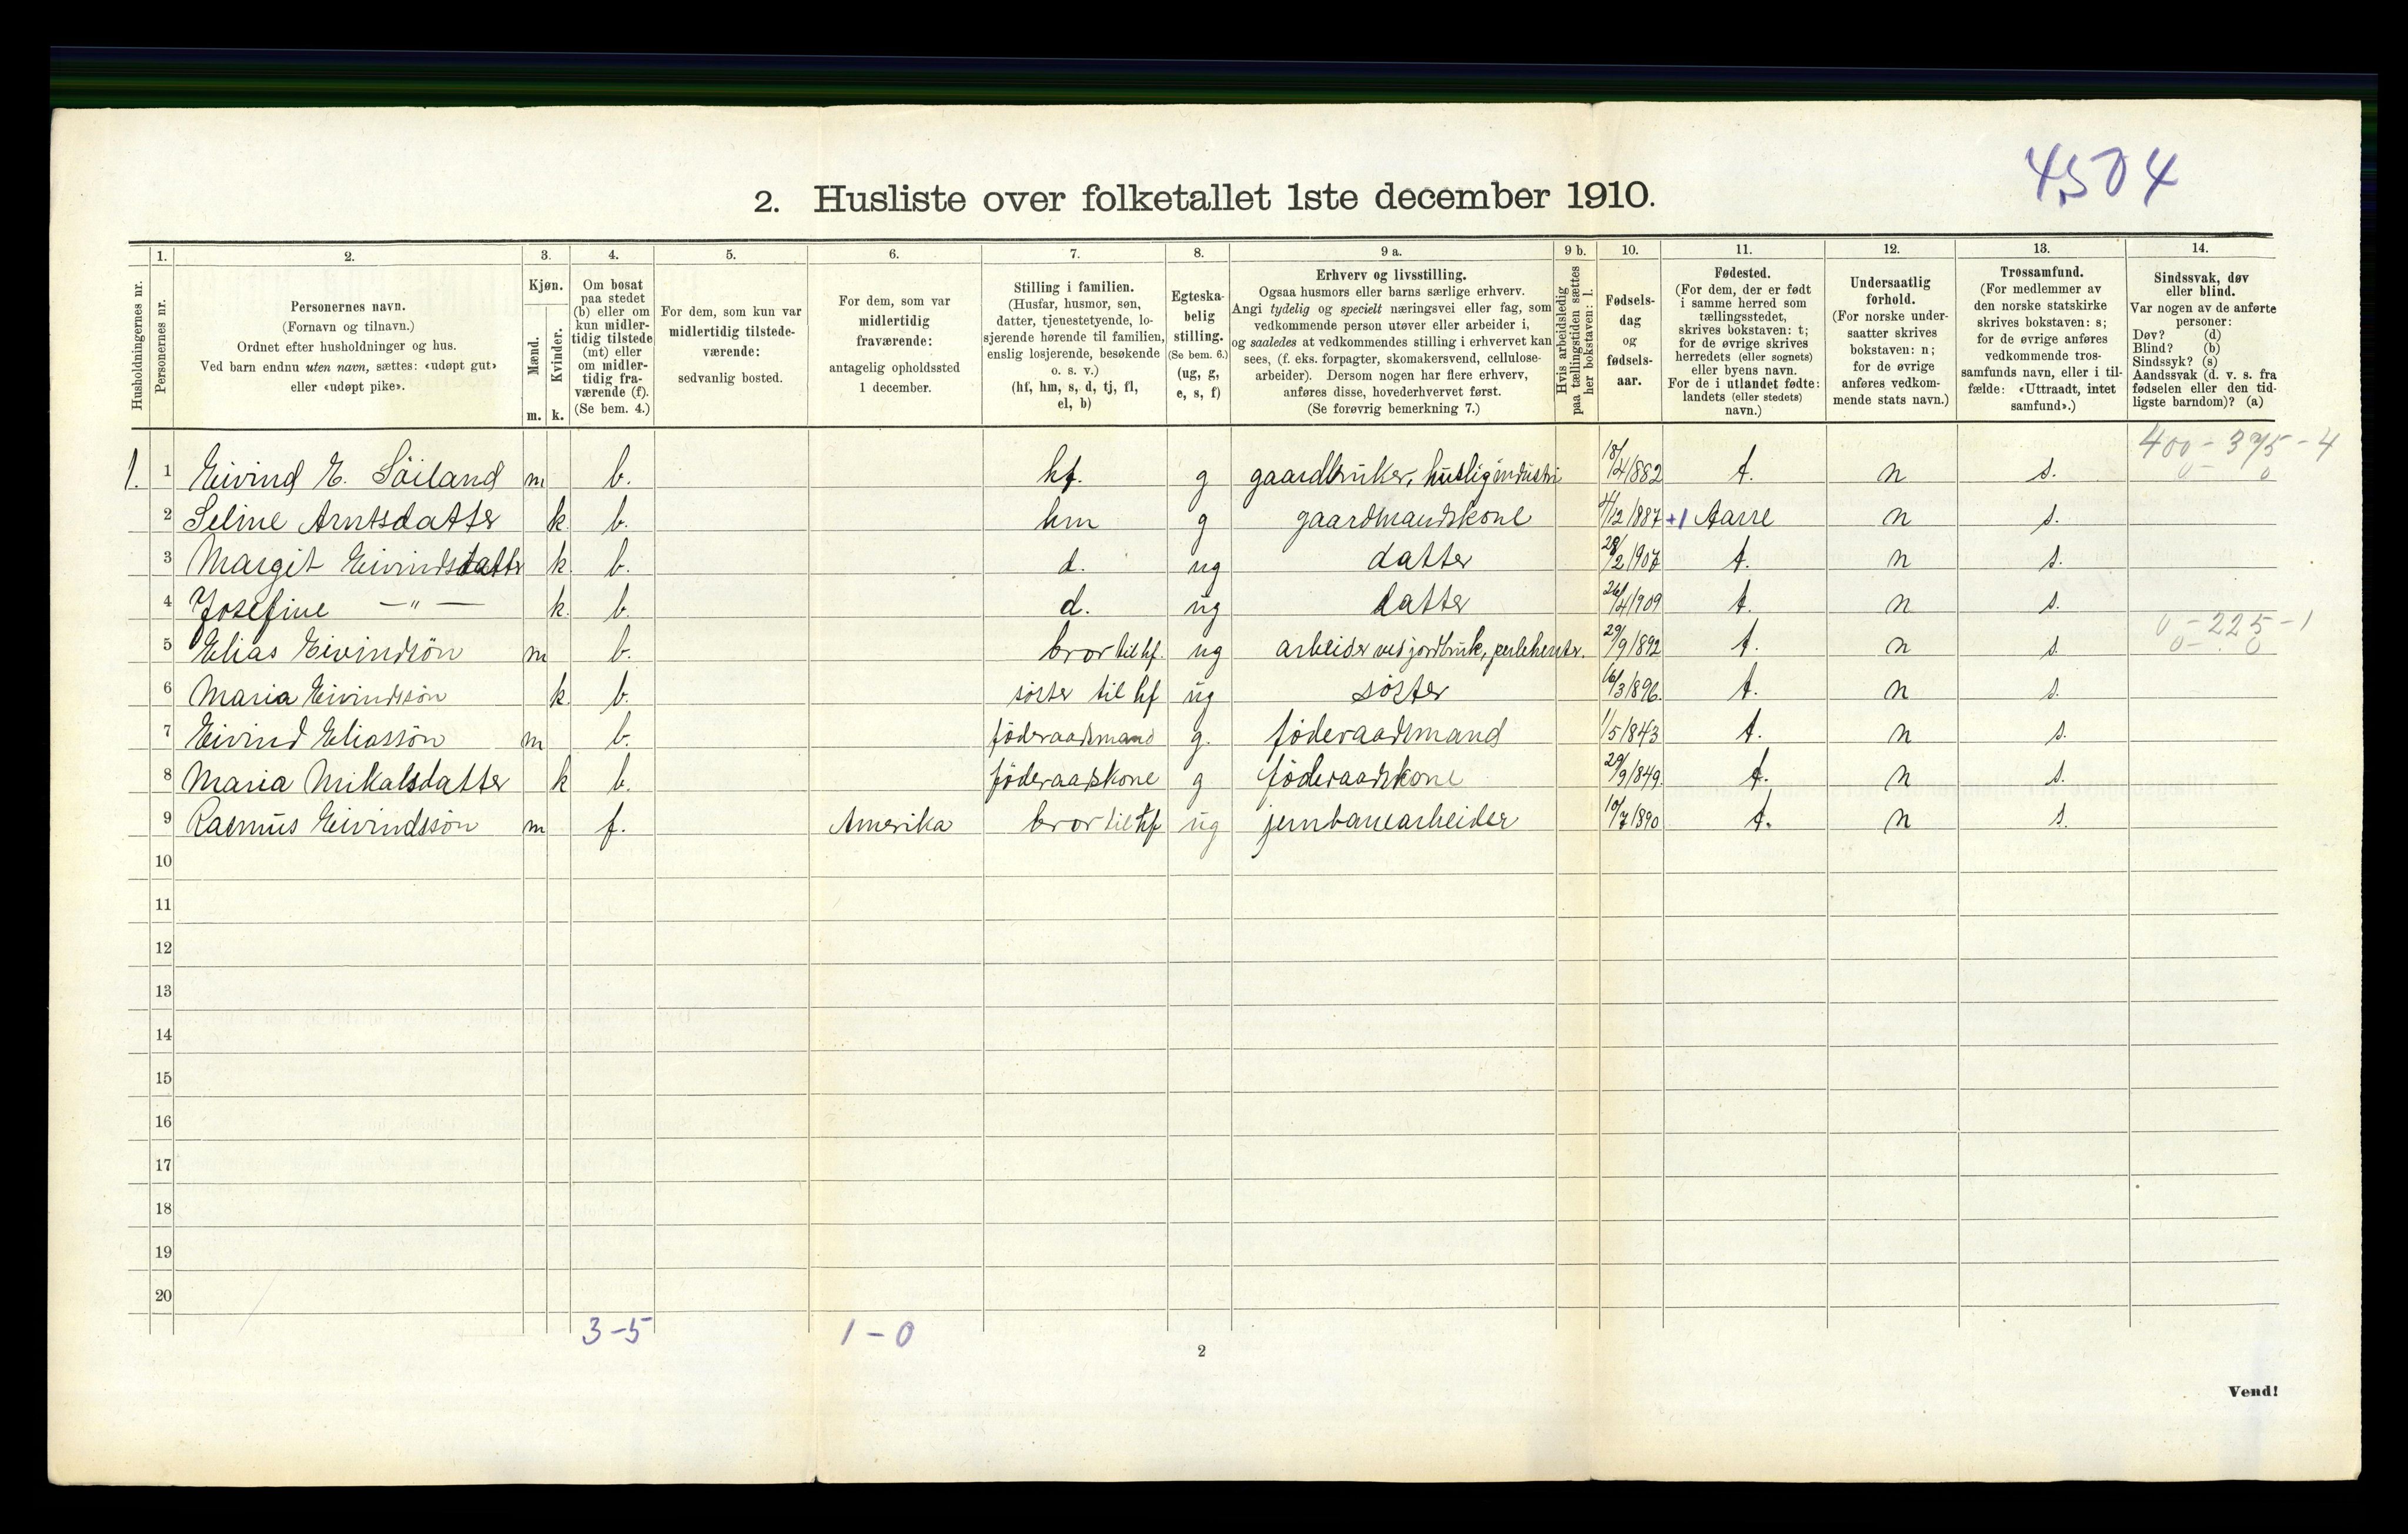 4504
2. Husliste over folketallet 1ste december 1910.
1. 2. 3. 4. 5. 6. 7. 8. 9 a. 9 b. 10. 11. 12. 13. 14.
Husholdningernes nr.
Personernes nr.
Personernes navn.
(Fornavn og tilnavn.)
Ordnet efter husholdninger og hus.
Ved barn endnu uten navn, sættes: «udøpt gut»
eller «udøpt pike».
Kjøn.
Mænd.
Kvinder.
m. k.
Om bosat
paa stedet
(b) eller om
kun midler-
tidig tilstede
(mt) eller
om midler-
tidig fra-
værende (f).
(Se bem. 4.)
For dem, som kun var
midlertidig tilstede-
værende:
sedvanlig bosted.
For dem, som var
midlertidig
fraværende:
antagelig opholdssted
1 december.
Stilling i familien.
(Husfar, husmor, søn,
datter, tjenestetyende, lo-
sjerende hørende til familien,
enslig losjerende, besøkende
o. s. v.)
(hf, hm, s, d, tj, fl,
el, b)
Egteska-
belig
stilling.
(Se bem. 6.)
(ug, g,
e, s, f)
Erhverv og livsstilling.
Ogsaa husmors eller barns særlige erhverv.
Angi tydelig og specielt næringsvei eller fag, som
vedkommende person utøver eller arbeider i,
og saaledes at vedkommendes stilling i erhvervet kan
sees, (f. eks. forpagter, skomakersvend, cellulose-
arbeider). Dersom nogen har flere erhverv,
anføres disse, hovederhvervet først.
(Se forøvrig bemerkning 7.)
Hvis arbeidsledig
paa tællingstiden sættes
her bokstaven: l.
Fødsels-
dag
og
fødsels-
aar.
Fødested.
(For dem, der er født
i samme herred som
tællingsstedet,
skrives bokstaven: t;
for de øvrige skrives
herredets (eller sognets)
eller byens navn.
For de i utlandet fødte:
landets (eller stedets)
navn.)
Undersaatlig
forhold.
(For norske under-
saatter skrives
bokstaven: n;
for de øvrige
anføres vedkom-
mende stats navn.)
Trossamfund.
(For medlemmer av
den norske statskirke
skrives bokstaven: s;
for de øvrige anføres
vedkommende tros-
samfunds navn, eller i til-
fælde: «Uttraadt, intet
samfund».)
Sindssvak, døv
eller blind.
Var nogen av de anførte
personer:
Døv? (d)
Blind? (b)
Sindssyk? (s)
Aandssvak (d. v. s. fra
fødselen eller den tid-
ligste barndom)? (a)
400 - 375 - 4
1. 1 Eivind E. Söiland m b. hf. g gaardbruker, huslig industri 18/4 1882 t. n s. 0 - 0
2 Seline Arntsdatter k b. hm g gaardmandskone 4/12 1887 +1 Aarre n s.
3 Margit Eivindsdatter k. b. d. ug datter 28/2 1907 t. n s.
4 Josefine — " — k. b. d. ug datter 26/4 1909 t. n s.
0 - 225 - 1
5 Elias Eivindsön m b. bror til hf. ug arbeider ved jordbruk, perlehenter. 29/9 1892 t. n s 0 - 0
6 Maria Eivindssön k. b. söster til hf ug söster 16/3 1896. t. n s.
7 Eivind Eliassön m b. föderaadsmand g. föderaadsmand 1/5 1843 t. n s.
8 Maria Mikalsdatter k b. föderaadskone g föderaadskone 29/9 1849. t. n s.
9 Rasmus Eivindssön m f. Amerika bror til hf ug jernbanearbeider 10/7 1890 t. n s.
10
11
12
13
14
15
16
17
18
19
20
3-5 1-0
2
Vend!